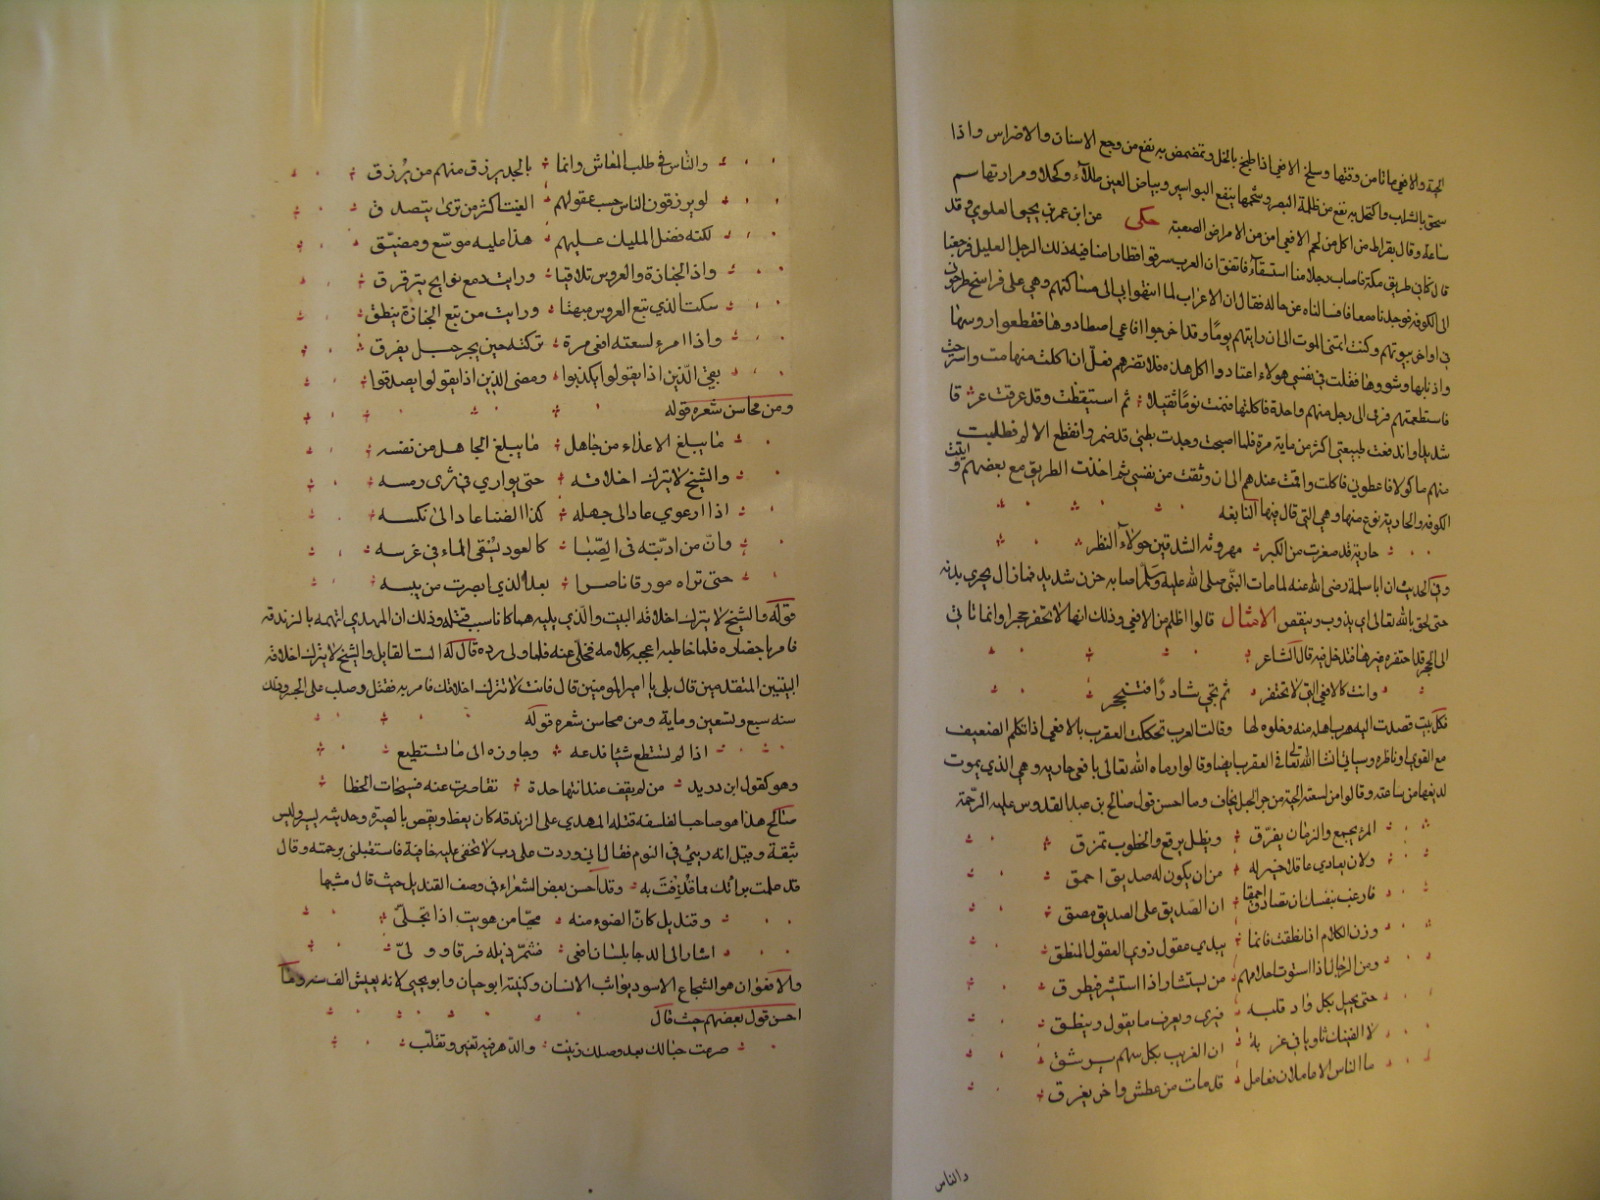 الحية والافعى ماتا من وقتها وسلخ الافعى اذا طبخ بالخل وتمضمض به نفع من وجع الاسنان والاضراس واذا
سحق بالشراب واكتحل به نفع من ظلمة البصر وشحمها ينفع البواسير وبياض العين طلاء وكحلا ومرارتها سم
ساعة وقال بقراط من اكل من لحم الافعى امن من الامراض الصعبة حكى عن ابن عمر بن يحيى العلوي وقد
قال كنا في طريق مكة فاصاب رجلا منا استسقاء فاتفق ان العرب سرقوا قطارا منا فيه ذلك الرجل العليل فرجعنا
الى الكوفة فوجدناه معافا فسالناه عن حاله فقال ان الاعراب لما انتهوا بي الى مساكنهم وهي على فراسخ طرحوني
في اواخر بيوتهم وكنت اتمنى الموت الى ان رايتهم يوما وقد اخرجوا افاعي اصطادوها فقطعوا روسها
واذنابها وشووها فقلت في نفسي هولاء اعتادوا اكل هذه فلا تضرهم فلعلي ان اكلت منها مت واسترحت
فاستطعمتهم فرمى الى رجل منهم واحدة فاكلتها فنمت نوما ثقيلا ثم استيقظت وقد عرقت عرقا
شديدا واندفعت طبيعتي اكثر من ماية مرة فلما اصبحت وجدت بطني قد ضمر وانقطع الالم فطلبت
منهم ماكولا فاعطوني فاكلت واقمت عندهم الى ان وثقت من نفسي ثم اخذت الطريق مع بعضهم واتيت
الكوفة والحارية نوع منها وهي التي قال فيها النابغة
حارية قد صغرت من الكبر مهروتة الشدقين حولاء النظر
وفي الحديث ان ابا سلمة رضى الله عنه لما مات النبي صلى الله عليه وسلم اصابه حزن شديد فما زال يجري بدنه
حتى لحق بالله تعالى اي يذوب وينقص الامثال قالوا اظلم من الافعى وذلك انها لا تحتفر جحرا وانما تاتي
الى الحجر قد احتفره غيرها فتدخل فيه قال الشاعر
وانت كالافعى التي لا تحتفر ثم تجي شادرا فتنجحر
فكل بيت قصدت اليه هرب اهله منه وخلوه لها وقالت العرب تحككت العقرب بالافعى اذا تكلم الضعيف
مع القوي او ناظره وسياتي انشا الله تعالى في العقرب ايضا وقالوا رماه الله تعالى بافعى حارية وهي الذي يموت
لديغها من ساعته وقالوا من لسعته الحية من جر الحبل يخاف وما احسن قول صالح بن عبد القدوس عليه الرحمة
المرء يجمع والزمان يفرق ويظل يرقع والخطوب تمزق
ولان يعادي عاقلا خير له من ان يكون له صديق احمق
فارغب بنفسك ان تصادق احمقا ان الصديق على الصديق مصدق
وزن الكلام اذا نطقت فانما يبدي عقول ذوي العقول المنطق
ومن الرجال اذا استوت احلامهم من يستشار اذا استشير فيطرق
حتى يجيل بكل واد قلبه فيرى ويعرف ما يقول وينطق
لا الفينك ثاويا في غربة ان الغريب بكل سهم يرشق
ما الناس الا عاملان فعامل قد مات من عطش واخر يغرق
والناس
والناس في طلب المعاش وانما بالجد يرزق منهم من يرزق
لو يرزقون الناس حسب عقولهم الفيت اكثر من ترى يتصدق
لكنه فضل المليك عليهم هذا عليه موسع ومضيق
واذا الجنازة والعروس تلاقيا ورايت دمع نوايح يترقرق
سكت الذي تبع العروس مبهتا ورايت من تبع الجنازة ينطق
واذا امرء لسعته افعى مرة تركته حين يجر حبل يفرق
بقي الذين اذا يقولوا يكذبوا ومضى الذين اذا يقولوا يصدقوا
ومن محاسن شعره قوله
ما يبلغ الاعداء من جاهل ما يبلغ الجاهل من نفسه
والشيخ لا يترك اخلاقه حتى يواري في ثرى رمسه
اذا ارعوي عاد الى جهله كذا الضنا عاد الى نكسه
وان من ادبته في الصبا كالعود يسقى الماء في غرسه
حتى تراه مورقا ناضرا بعد الذي ابصرت من يبسه
قوله والشيخ لا يترك اخلاقه البيت والذي يليه هما كانا سبب قتله وذلك ان المهدي اتهمه بالزندقة
فامر باحضاره فلما خاطبه اعجبه كلامه فخلى عنه فلما ولى رده قال له الست القايل والشيخ لا يترك اخلاقه
البيتين المتقدمين قال بلى يا امير المومنين قال فانت لا تترك اخلاقك فامر به فقتل وصلب على الجسر وذلك
سنه سبع وتسعين وماية ومن محاسن شعره قوله
اذا لم تستطع شيئا فدعه وجاوزه الى ما تستطيع
وهو كقول ابن دريد من لم يقف عند انتها حدة تقاصرت عنه فسيحات الخطا
صالح هذا هو صاحب الفلسفه قتله المهدي على الزندقه كان يعظ ويقص بالبصرة وحديثه يسير وليس
بثقة وقيل انه رييَ في النوم فقال اني وردت على رب لا تخفى عليه خافية فاستقبلني برحمته وقال
قد علمت براتك مما قذفت به وقد احسن بعض الشعراء في وصف القنديل حيث قال مشبها
وقنديل كان الضوء منه محيا من هويت اذا تجلى
اشار الى الدجا بلسان افعى فشمر ذيله فرقا وولى
والافعوان هو الشجاع الاسود يواثب الانسان وكنيته ابو حيان وابو يحيى لانه يعيش الف سنه وما
احسن قول بعضهم حيث قال
صرمت حبالك بعد وصلك زينب والدهر فيه تغير وتقلب